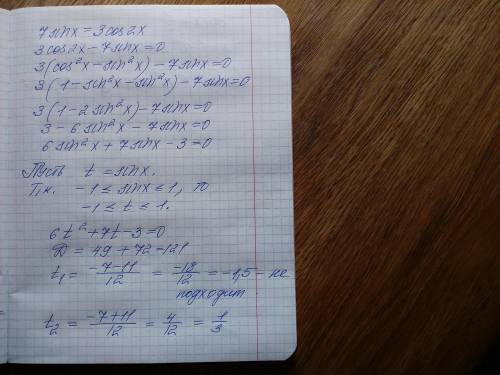 7sinx = 3cos2x
3cos2x - 7sinx = 0
3(cos²x - sin²x) - 7sinx = 0
3(1 - sin²x - sin²x) - 7sinx = 0
3(1 - 2sin²x) - 7sinx = 0
3 - 6sin²x - 7sinx = 0
6sin²x + 7sinx - 3 = 0
Пусть t = sinx.
Т.к. -1 ≤ sinx ≤ 1, то
-1 ≤ t ≤ 1.
6t² + 7t - 3 = 0
D = 49 + 72 = 121
t₁ = (-7-11)/12 = -18/12 = -1,5 - не
подходит.
t₂ = (-7+11)/12 = 4/12 = 1/3